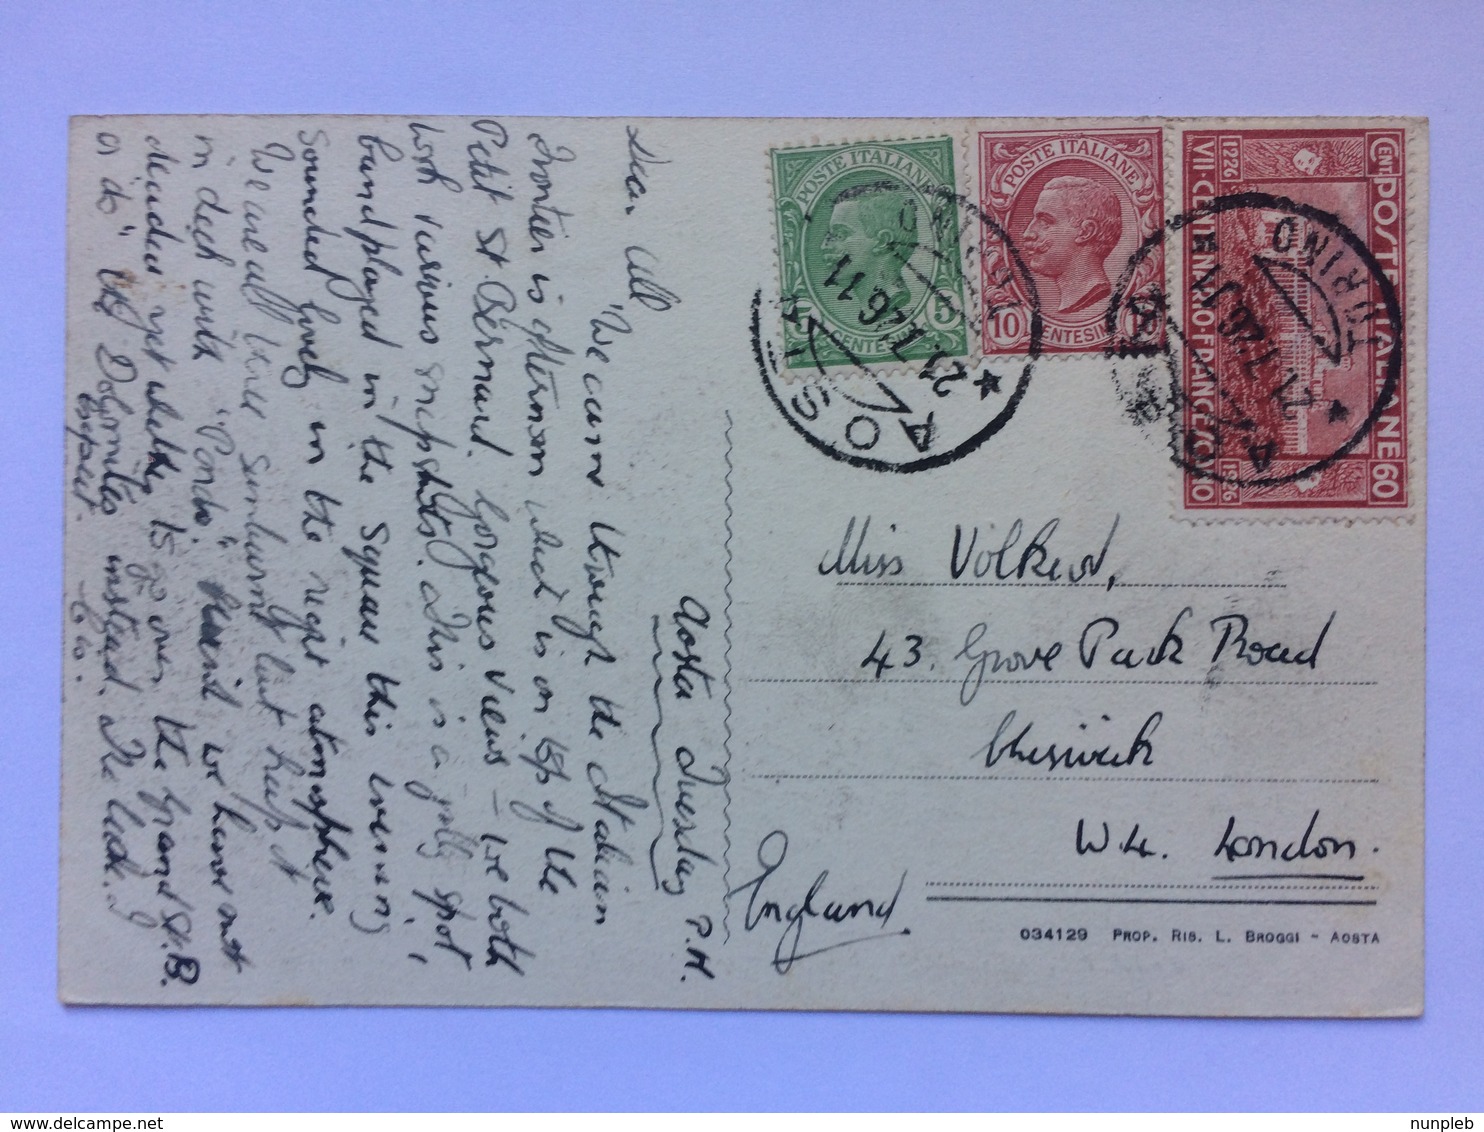 Aosta Tuesday P.M.
Dear All
We came through the Italian
frontier is afternoon which is on top of the
Petit St. Bernard. Gorgeous views – we both
took various snapshots. This is a jolly spot,
band played in the Square this evening
sounded lovely in the night atmosphere.
We are all three sunburnt but keep it
in check with "Ponds". We have not
decided yet whether to go over the Grand St. B.
or do the Dolomites instead. The latter I
expect.
POSTE ITALIANE
5 CENTESIMI 5
POSTE ITALIANE
10 CENTESIMI 10
CENT. POSTE ITALIANE 60
1226 VII CENTENARIO FRANCESCANO 1926
AOSTA TORINO
23.7.26.11
AOSTA TORINO
Miss Völkerd,
43. Grove Park Road
Chiswick
W.4. London.
England
034129 PROP. RIS. L. BROGGI - AOSTA
delcampe.net
nunpleb